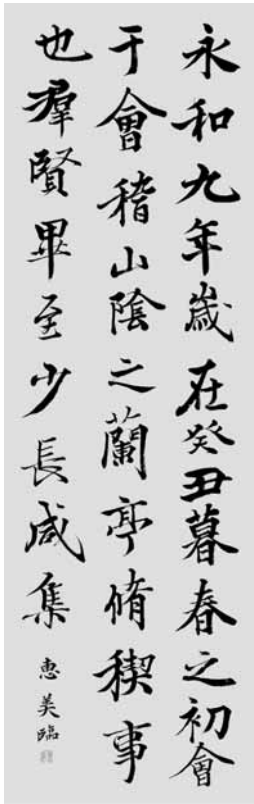 永和九年歲在癸丑暮春之初會
于會稽山陰之蘭亭脩稧事
也羣賢畢至少長咸集
惠美臨